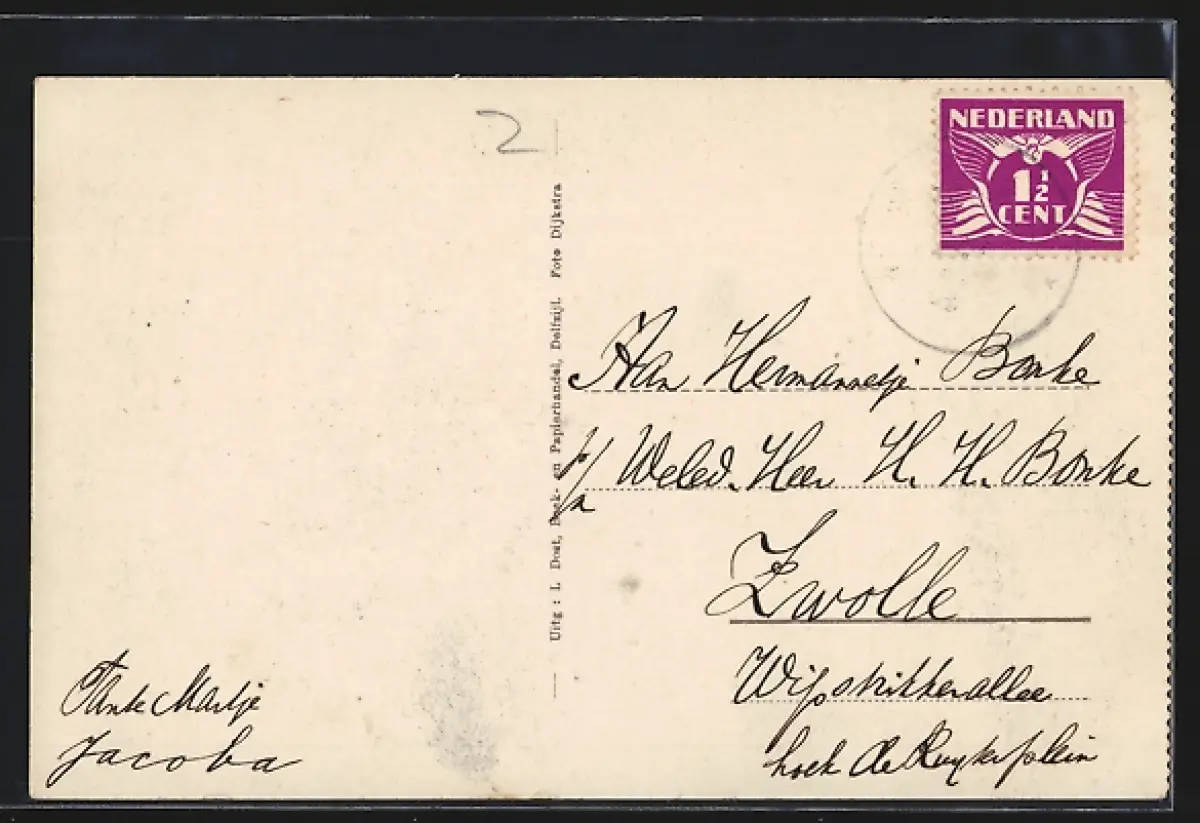 2
NEDERLAND
1 1/2
CENT
Uitg : L Dost, Boek- en Papierhandel, Delfzijl. Foto Dijkstra
Aan Hermannetje Bonke
p/a Weled. Heer H. H. Bonke
Zwolle
Wipstrikkerallee
hoek de Ruyterplein
Tante Martje
Jacoba